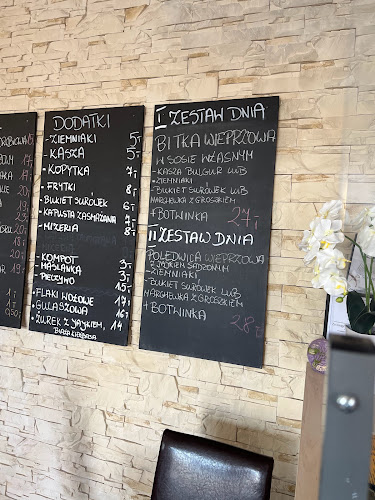 DODATKI
-ZIEMNIAKI 5,-
-KASZA 5,-
-KOPYTKA 7,-
-FRYTKI 8,-
-BUKIET SURÓWEK 6,-
-KAPUSTA ZASMAŻANA 7,-
-MIZERIA 8,-
-KOMPOT 3,-
-MAŚLANKA 3,-
-PIECZYWO
•FLAKI WOŁOWE 17,-
•GULASZOWA 16,-
•ŻUREK Z JAJKIEM, 14
BIAŁA KIEŁBASA
I ZESTAW DNIA
BITKA WIEPRZOWA
W SOSIE WŁASNYM
-KASZA BULGUR LUB
-ZIEMNIAKI
-BUKIET SURÓWEK LUB
MARCHEWKA Z GROSZKIEM
+BOTWINKA 27,-
II ZESTAW DNIA
POLĘDWICA WIEPRZOWA
Z JAJKIEM SADZONYM
-ZIEMNIAKI
-BUKIET SURÓWEK LUB
MARCHEWKA Z GROSZKIEM
+BOTWINKA 28,-